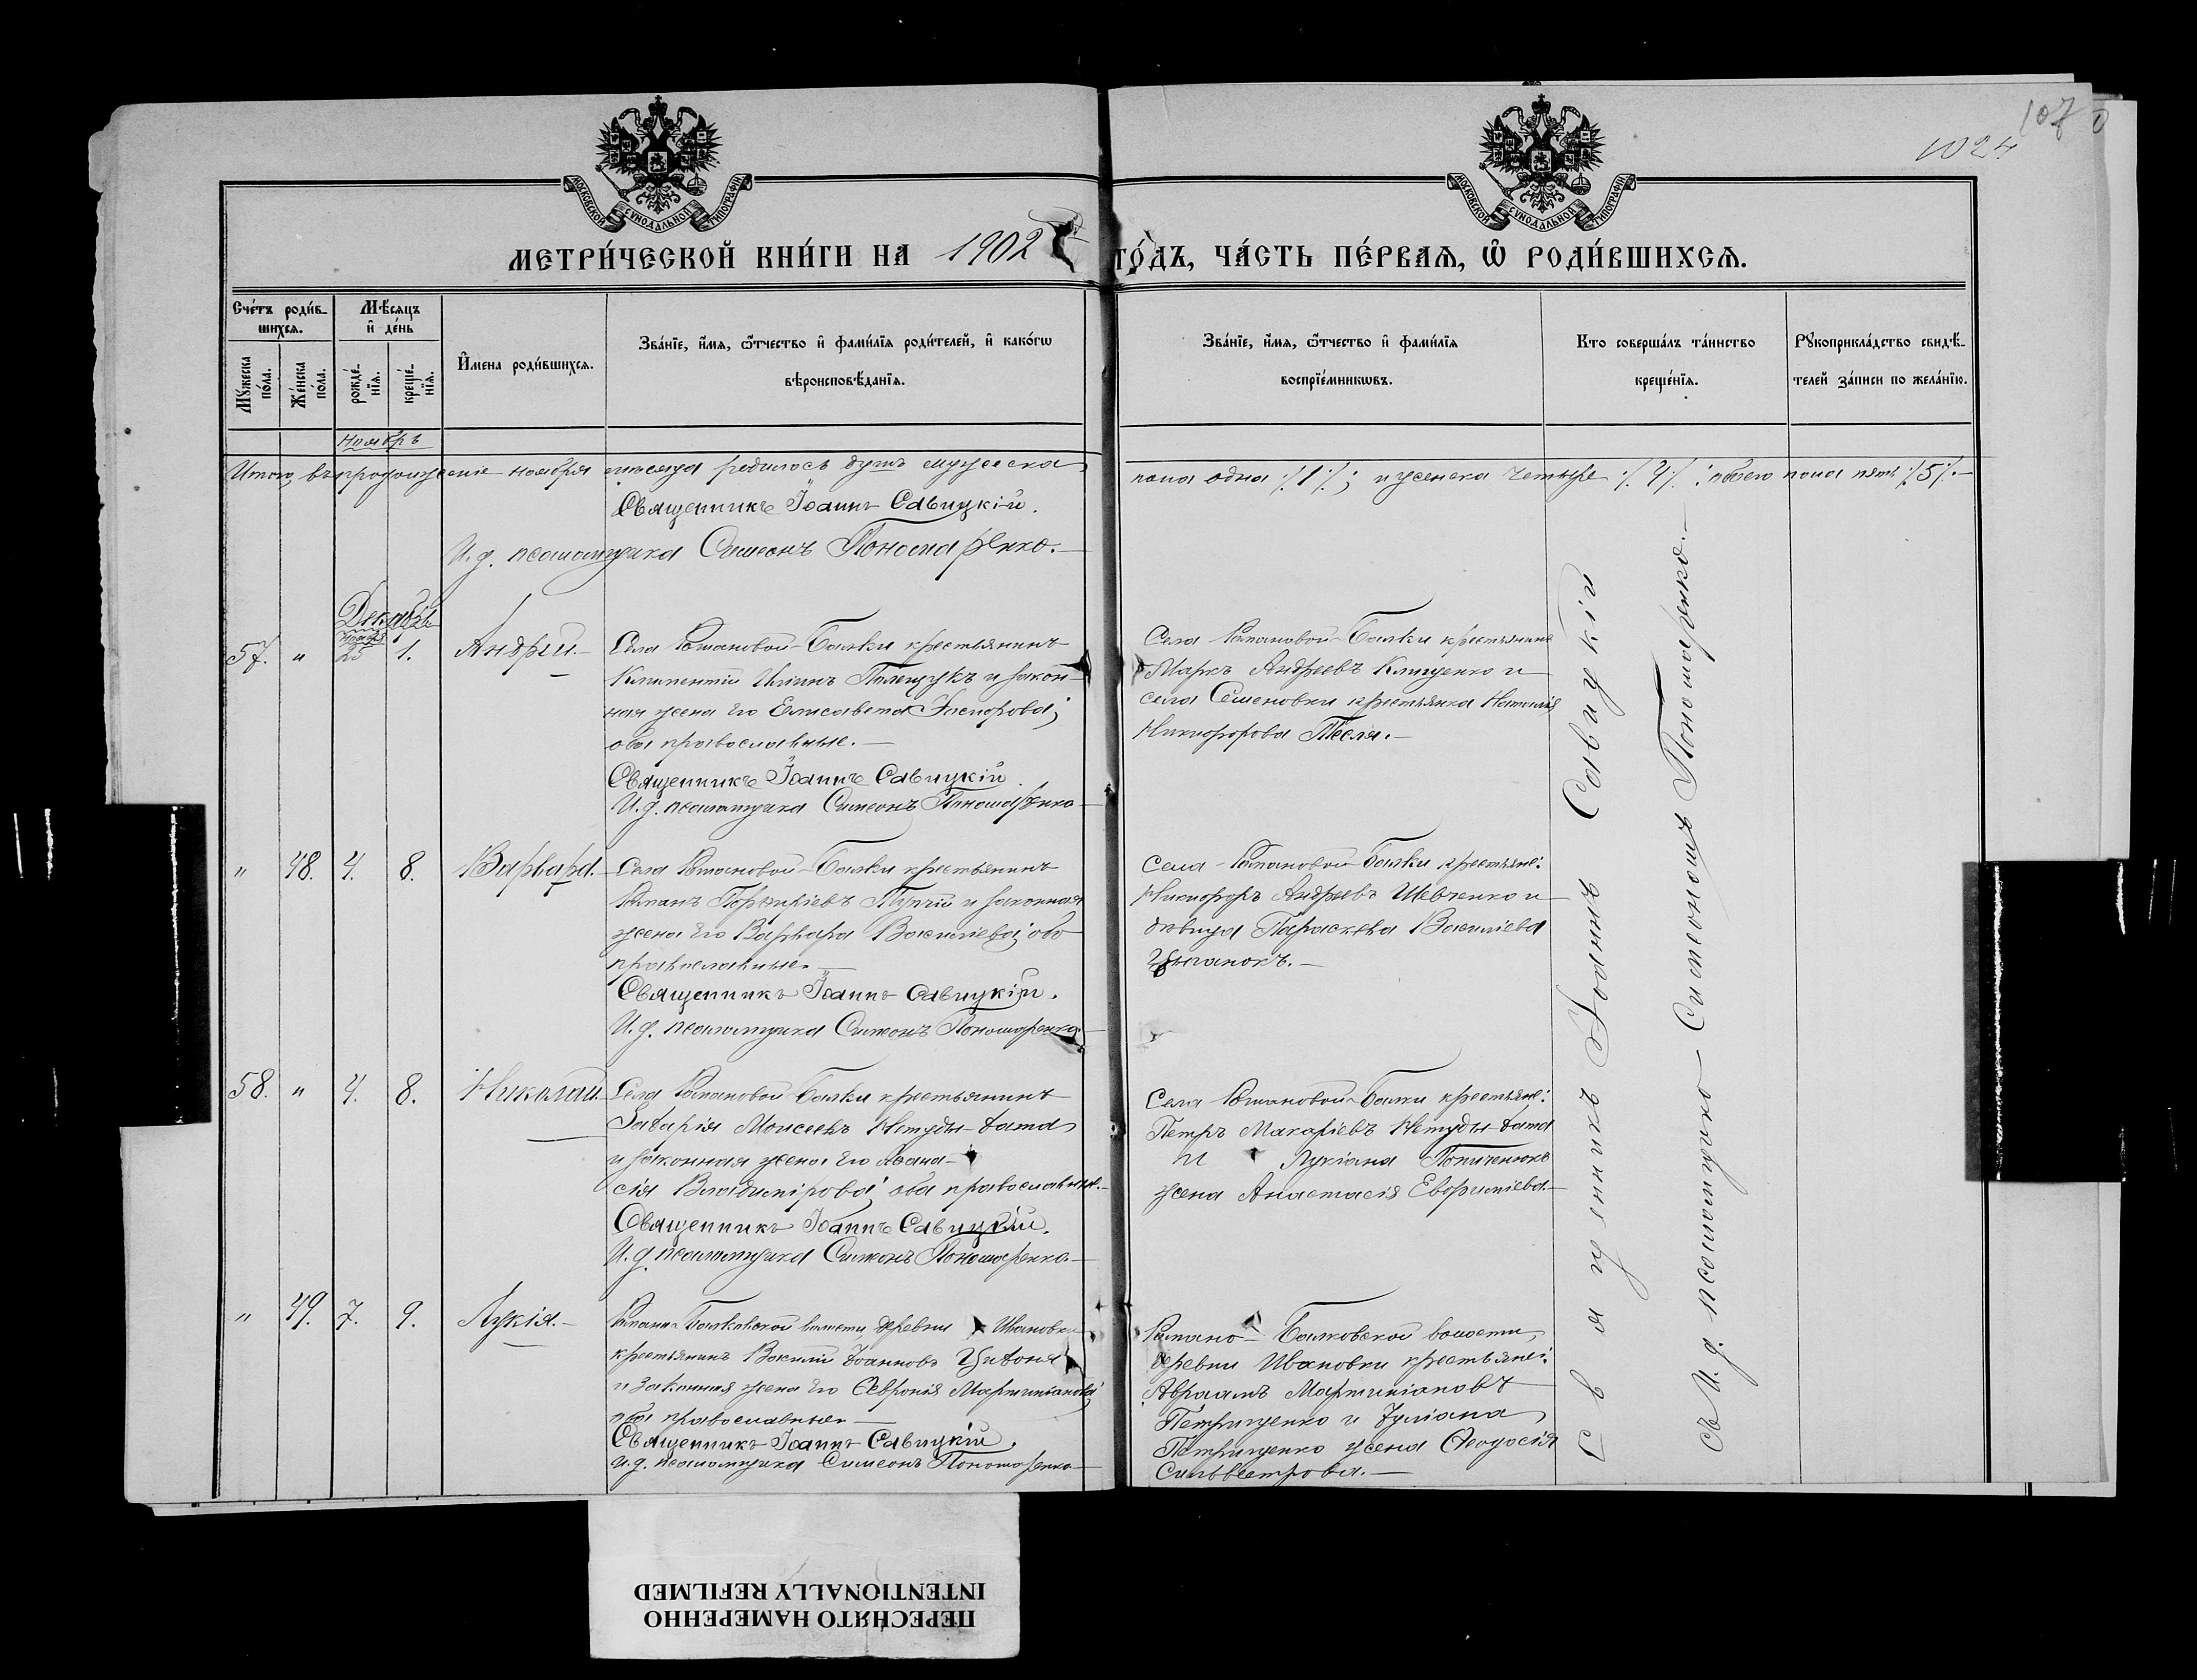 107
1024
МОСКОВСКОЙ СѴНОДАЛЬНОЙ ТИПОГРАФІИ
МОСКОВСКОЙ СѴНОДАЛЬНОЙ ТИПОГРАФІИ
МЕТРИ́ЧЕСКОЙ КНИ́ГИ НА 1902 ГО́ДЪ, ЧА́СТЬ ПЕ́РВАѦ, Ѡ҆ РОДИ́ВШИХСѦ.
Сче́тъ роди́в-
шихсѧ.
Мѣ́сѧцъ
и҆ де́нь
Мꙋ́жеска
по́ла.
Же́нска
по́ла.
рожде́-
нїѧ.
креще́-
нїѧ.
И҆́мена роди́вшихсѧ.
Зва́нїе, и҆́мѧ, ѻ҆́тчество и҆ фами́лїѧ роди́телей, и҆ како́гѡ
вѣроисповѣ́данїѧ.
Зва́нїе, и҆́мѧ, ѻ҆́тчество и҆ фами́лїѧ
воспрїе́мникѡвъ.
Кто соверша́лъ та́инство
креще́нїѧ.
Рꙋкоприкла́дство свидѣ́-
телей за́писи по жела́нїю.
Ноябрь
Итого, въ продолженіе ноября мѣсяца родилось душъ мужеска
пола одна ⁒ 1 ⁒; и женска четыре ⁒ 4 ⁒; обоего пола пять ⁒ 5 ⁒.—
Священникъ Іоаннъ Савицкій.
И. д. псаломщика Симеонъ Пономаренко.—
Декабрь
ноября
57. " 25 1. Андрей.—
Села Романовой-Балки крестьянинъ
Климентій Полещукъ и закон-
ная жена его Елисавета
оба православные.—
Священникъ Іоаннъ Савицкій.
И. д. псаломщика Симеонъ Пономаренко—
Села Романовой-Балки крестьянинъ
Маркъ Андреевъ Клищенко и
села Семеновки крестьянка Наталія
Никифорова Тесля.—
" 48. 4. 8. Варвара.—
Села Романовой-Балки крестьянинъ
Романъ Порфиріевъ и законная
жена его Варвара Василіева; оба
православные.—
Священникъ Іоаннъ Савицкій.
И. д. псаломщика Симеонъ Пономаренко—
Села Романовой-Балки крестьяне:
Никифоръ Андреевъ Шевченко и
дѣвица Параскева Василіева
Цыганокъ.—
58. " 4. 8. Николай.—
Села Романовой-Балки крестьянинъ
Захарія Моисеевъ Нетуды-хата
и законная жена его Аѳана-
сія Владимірова; оба православные.—
Священникъ Іоаннъ Савицкій.
И. д. псаломщика Симеонъ Пономаренко.—
Села Романовой-Балки крестьяне:
Петръ Макаріевъ Нетуды-хата
и Лукіана
жена Анастасія Евфиміева.—
" 49. 7. 9. Лукія.—
Романо-Балковской волости, деревни Ивановки
крестьянинъ Василій Іоанновъ
и законная жена его Февронія Мартиніанова;
оба православные.—
Священникъ Іоаннъ Савицкій.
И. д. псаломщика Симеонъ Пономаренко—
Романо-Балковской волости,
деревни Ивановки крестьяне:
Авраамъ Мартиніановъ
Петрищенко и Іуліана
Петрищенко жена Ѳеодосія
Сильвестрова.—
Священникъ Іоаннъ Савицкій
съ И. д. псаломщика — Симеономъ Пономаренко.—
ПЕРЕСНЯТО НАМЕРЕННО
INTENTIONALLY REFILMED